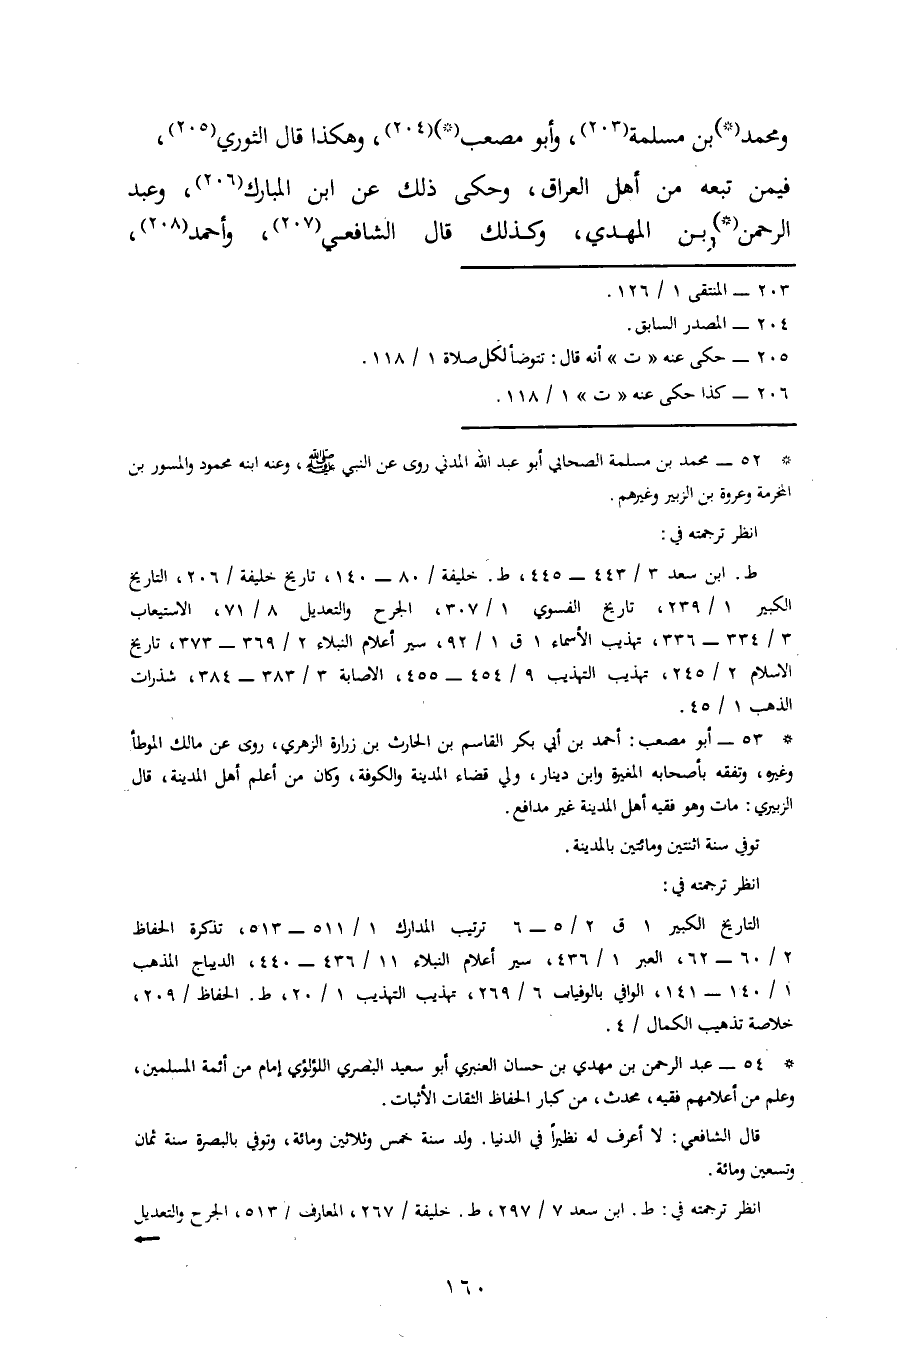 ومحمد(*)بن مسلمة(٢٠٣)، وأبو مصعب(*)(٢٠٤)، وهكذا قال الثوري(٢٠٥)،
فيمن تبعه من أهل العراق، وحكى ذلك عن ابن المبارك(٢٠٦)، وعبد
الرحمن(*)بن المهدي، وكذلك قال الشافعي(٢٠٧)، وأحمد(٢٠٨)،
٢٠٣ — المنتقى ١ / ١٢٦.
٢٠٤ — المصدر السابق.
٢٠٥ — حكى عنه « ت » أنه قال: تتوضأ لكل صلاة ١ / ١١٨.
٢٠٦ — كذا حكى عنه « ت » ١ / ١١٨.
* ٥٢ — محمد بن مسلمة الصحابي أبو عبد الله المدني روى عن النبي ﷺ، وعنه ابنه محمود والمسور بن
المخرمة وعروة بن الزبير وغيرهم.
انظر ترجمته في:
ط. ابن سعد ٣ / ٤٤٣ — ٤٤٥، ط. خليفة / ٨٠ — ١٤٠، تاريخ خليفة / ٢٠٦، التاريخ
الكبير ١ / ٢٣٩، تاريخ الفسوي ١ / ٣٠٧، الجرح والتعديل ٨ / ٧١، الاستيعاب
٣ / ٣٣٤ — ٣٣٦، تهذيب الأسماء ١ ق ١ / ٩٢، سير أعلام النبلاء ٢ / ٣٦٩ — ٣٧٣، تاريخ
الاسلام ٢ / ٢٤٥، تهذيب التهذيب ٩ / ٤٥٤ — ٤٥٥، الاصابة ٣ / ٣٨٣ — ٣٨٤، شذرات
الذهب ١ / ٤٥.
* ٥٣ — أبو مصعب: أحمد بن أبي بكر القاسم بن الحارث بن زرارة الزهري، روى عن مالك الموطأ
وغيره، وتفقه بأصحابه المغيرة وابن دينار، ولي قضاء المدينة والكوفة، وكان من أعلم أهل المدينة، قال
الزبيري: مات وهو فقيه أهل المدينة غير مدافع.
توفي سنة اثنتين ومائتين بالمدينة.
انظر ترجمته في:
التاريخ الكبير ١ ق ٢ / ٥ — ٦ ترتيب المدارك ١ / ٥١١ — ٥١٣، تذكرة الحفاظ
٢ / ٦٠ — ٦٢، العبر ١ / ٤٣٦، سير أعلام النبلاء ١١ / ٤٣٦ — ٤٤٠، الديباج المذهب
١ / ١٤٠ — ١٤١، الوافي بالوفيات ٦ / ٢٦٩، تهذيب التهذيب ١ / ٢٠، ط. الحفاظ / ٢٠٩،
خلاصة تذهيب الكمال / ٤.
* ٥٤ — عبد الرحمن بن مهدي بن حسان العنبري أبو سعيد البصري اللؤلؤي إمام من أئمة المسلمين،
وعلم من أعلامهم فقيه، محدث، من كبار الحفاظ الثقات الأثبات.
قال الشافعي: لا أعرف له نظيراً في الدنيا. ولد سنة خمس وثلاثين ومائة، وتوفي بالبصرة سنة ثمان
وتسعين ومائة.
انظر ترجمته في: ط. ابن سعد ٧ / ٢٩٧، ط. خليفة / ٢٦٧، المعارف / ٥١٣، الجرح والتعديل
١٦٠